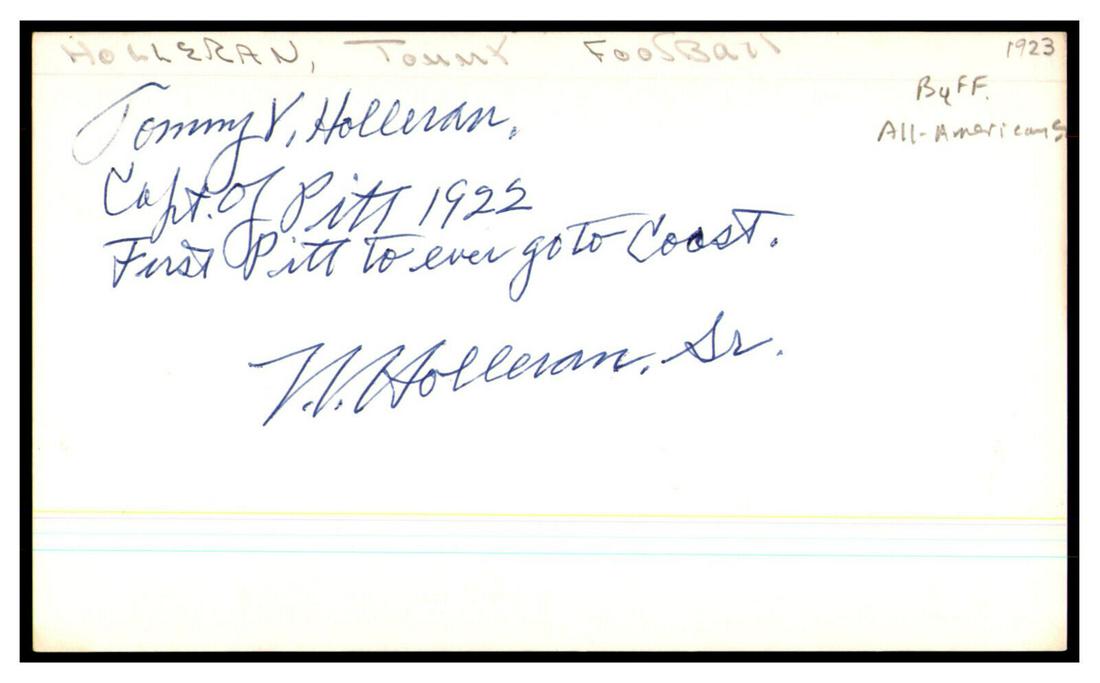 HOLLERAN, Tommy FootBall
1923
Buff.
All-Americans
Tommy V. Holleran.
Capt. of Pitt 1922
First Pitt to ever go to Coast.
T.V. Holleran, Sr.